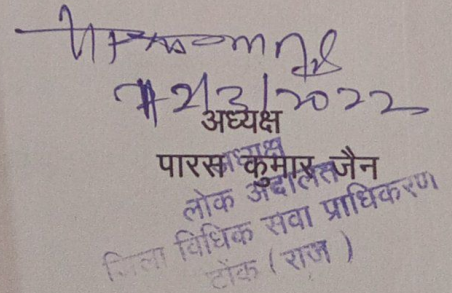 12/3/2022
अध्यक्ष
पारस कुमार जैन
अध्यक्ष
लोक अदालत
जिला विधिक सेवा प्राधिकरण
टोंक (राज )